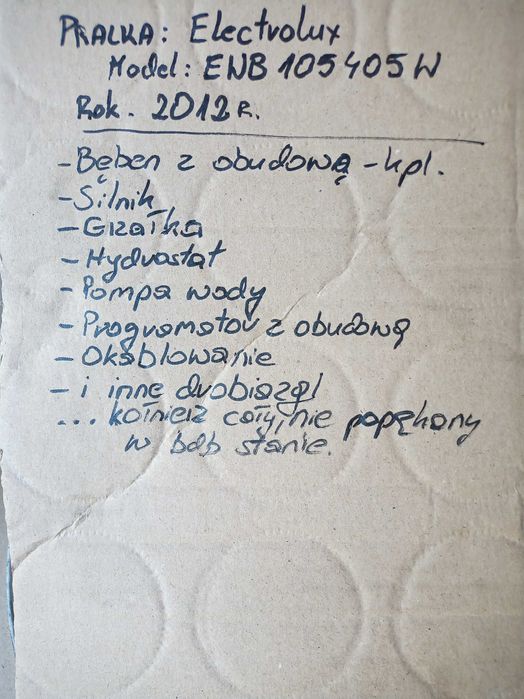 PRALKA: Electrolux
Model: EWB 105405W
Rok. 2012 R.
- Bęben z obudową - kpl.
- Silnik
- Grzałka
- Hydrostat
- Pompa wody
- Programator z obudową
- Okablowanie
- i inne drobiazgi
... kołnierz cały, nie popękany
w bdb stanie.